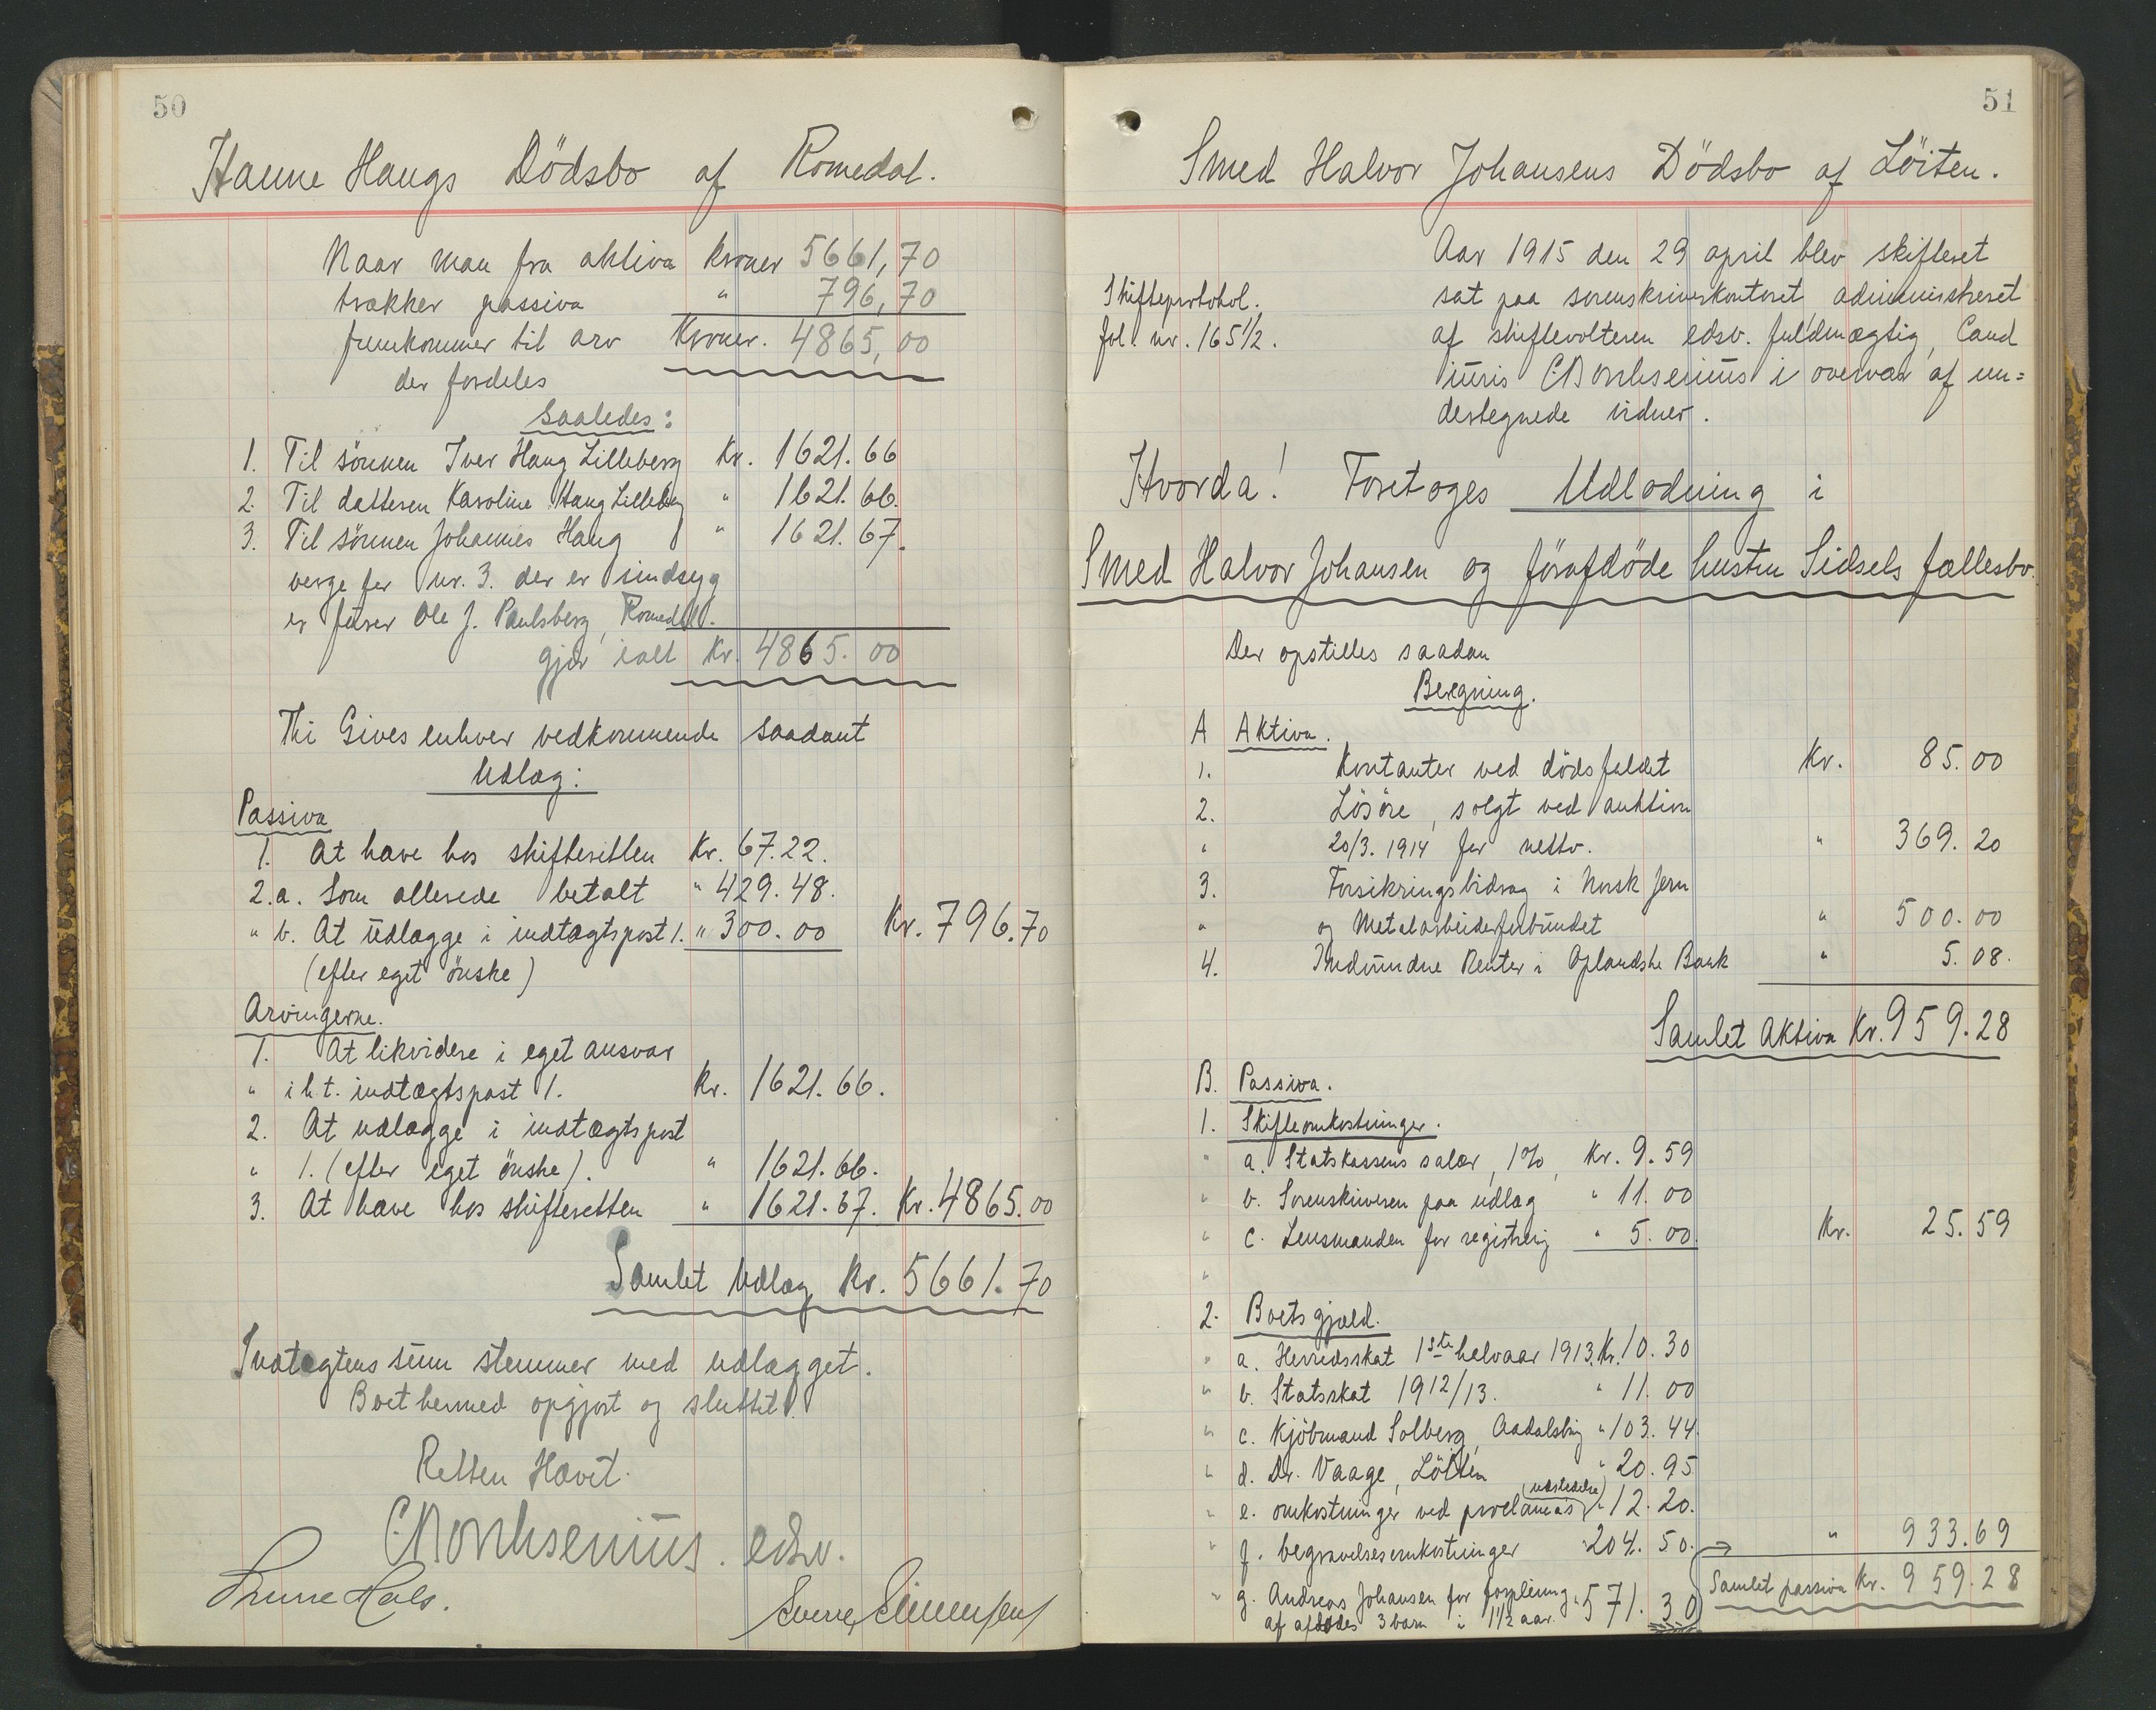 50
Hanne Haugs Dödsbo af Romedal.
Naar man fra aktiva kroner 5661,70
trækker passiva " 796,70
fremkommer til arv Kroner. 4865,00
der fordeles
saaledes:
1. Til sönnen Iver Haug Lilleberg Kr. 1621.66
2. Til datteren Karoline Haug Lilleberg " 1621.66.
3. Til sönnen Johannes Haug " 1621.67.
verge for nr. 3. der er sindsyg
er furer Ole J. Paulsberg, Romedal.
gjör ialt Kr. 4865.00
Thi Gives enhver vedkommende saadant
Udlæg:
Passiva
1. At have hos skifteretten Kr. 67.22.
2.a. Som allerede betalt " 429.48.
" b. At udlægge i indtægtspost 1. " 300.00 Kr. 796.70
(efter eget önske)
Arvingerne.
1. At likvidere i eget ansvar
" i h.t. indtægtspost 1. Kr. 1621.66.
2. At udlægge i indtægtspost
" 1. (efter eget önske). " 1621.66.
3. At have hos skifteretten " 1621.67. Kr. 4865.00
Samlet Udlæg Kr. 5661.70
Indtægtens sum stemmer med udlægget.
Boet hermed opgjort og sluttet.
Retten Hævet.
C Borchsenius. edsv.
Hals. Sverre Simensen
51
Smed Halvor Johansens Dödsbo af Löiten.
Aar 1915 den 29 april blev skifteret
Skifteprotokol. sat paa sorenskriverkontoret administreret
fol. nr. 165 1/2. af skiftevolteren edsv. fuldmægtig, Cand
iuris C Borchsenius i overvær af un=
dertegnede vidner.
Hvorda! Foretoges Udlodning i
Smed Halvor Johansen og förafdöde hustru Sidsels fællesbo.
Der opstilles saadan
Beregning.
A Aktiva.
1. Kontanter ved dödsfaldet Kr. 85.00
2. Lösöre, solgt ved auktion
" 20/3. 1914 for netto. " 369.20
3. Forsikringsbidrag i Norsk Jern
" og Metalarbeiderforbundet " 500.00
4. Indvundne Renter i Oplandske Bank " 5.08.
Samlet Aktiva Kr. 959.28
B. Passiva.
1. Skifteomkostninger.
" a. Statskassens salær, 1%, Kr. 9.59
" b. Sorenskriveren paa udlæg " 11.00
" c. Lensmanden for registrering " 5.00 Kr. 25.59
"
2. Boets gjæld.
" a. Herredsskat 1ste halvaar 1913. Kr. 10.30
" b. Statsskat 1912/13. " 11.00
" c. Kjöbmand Solberg, Aadalsbrug " 103.44.
" d. Dr. Vaage, Löiten " 20.95
" e. omkostninger ved proclama's (udstedelse) " 12.20.
" f. begravelsesomkostninger " 204.50. → " 933.69
" g. Andreas Johansen for forpleining " 571.30 Samlet passiva Kr. 959.28
af afdödes 3 barn i 1 1/2 aar.